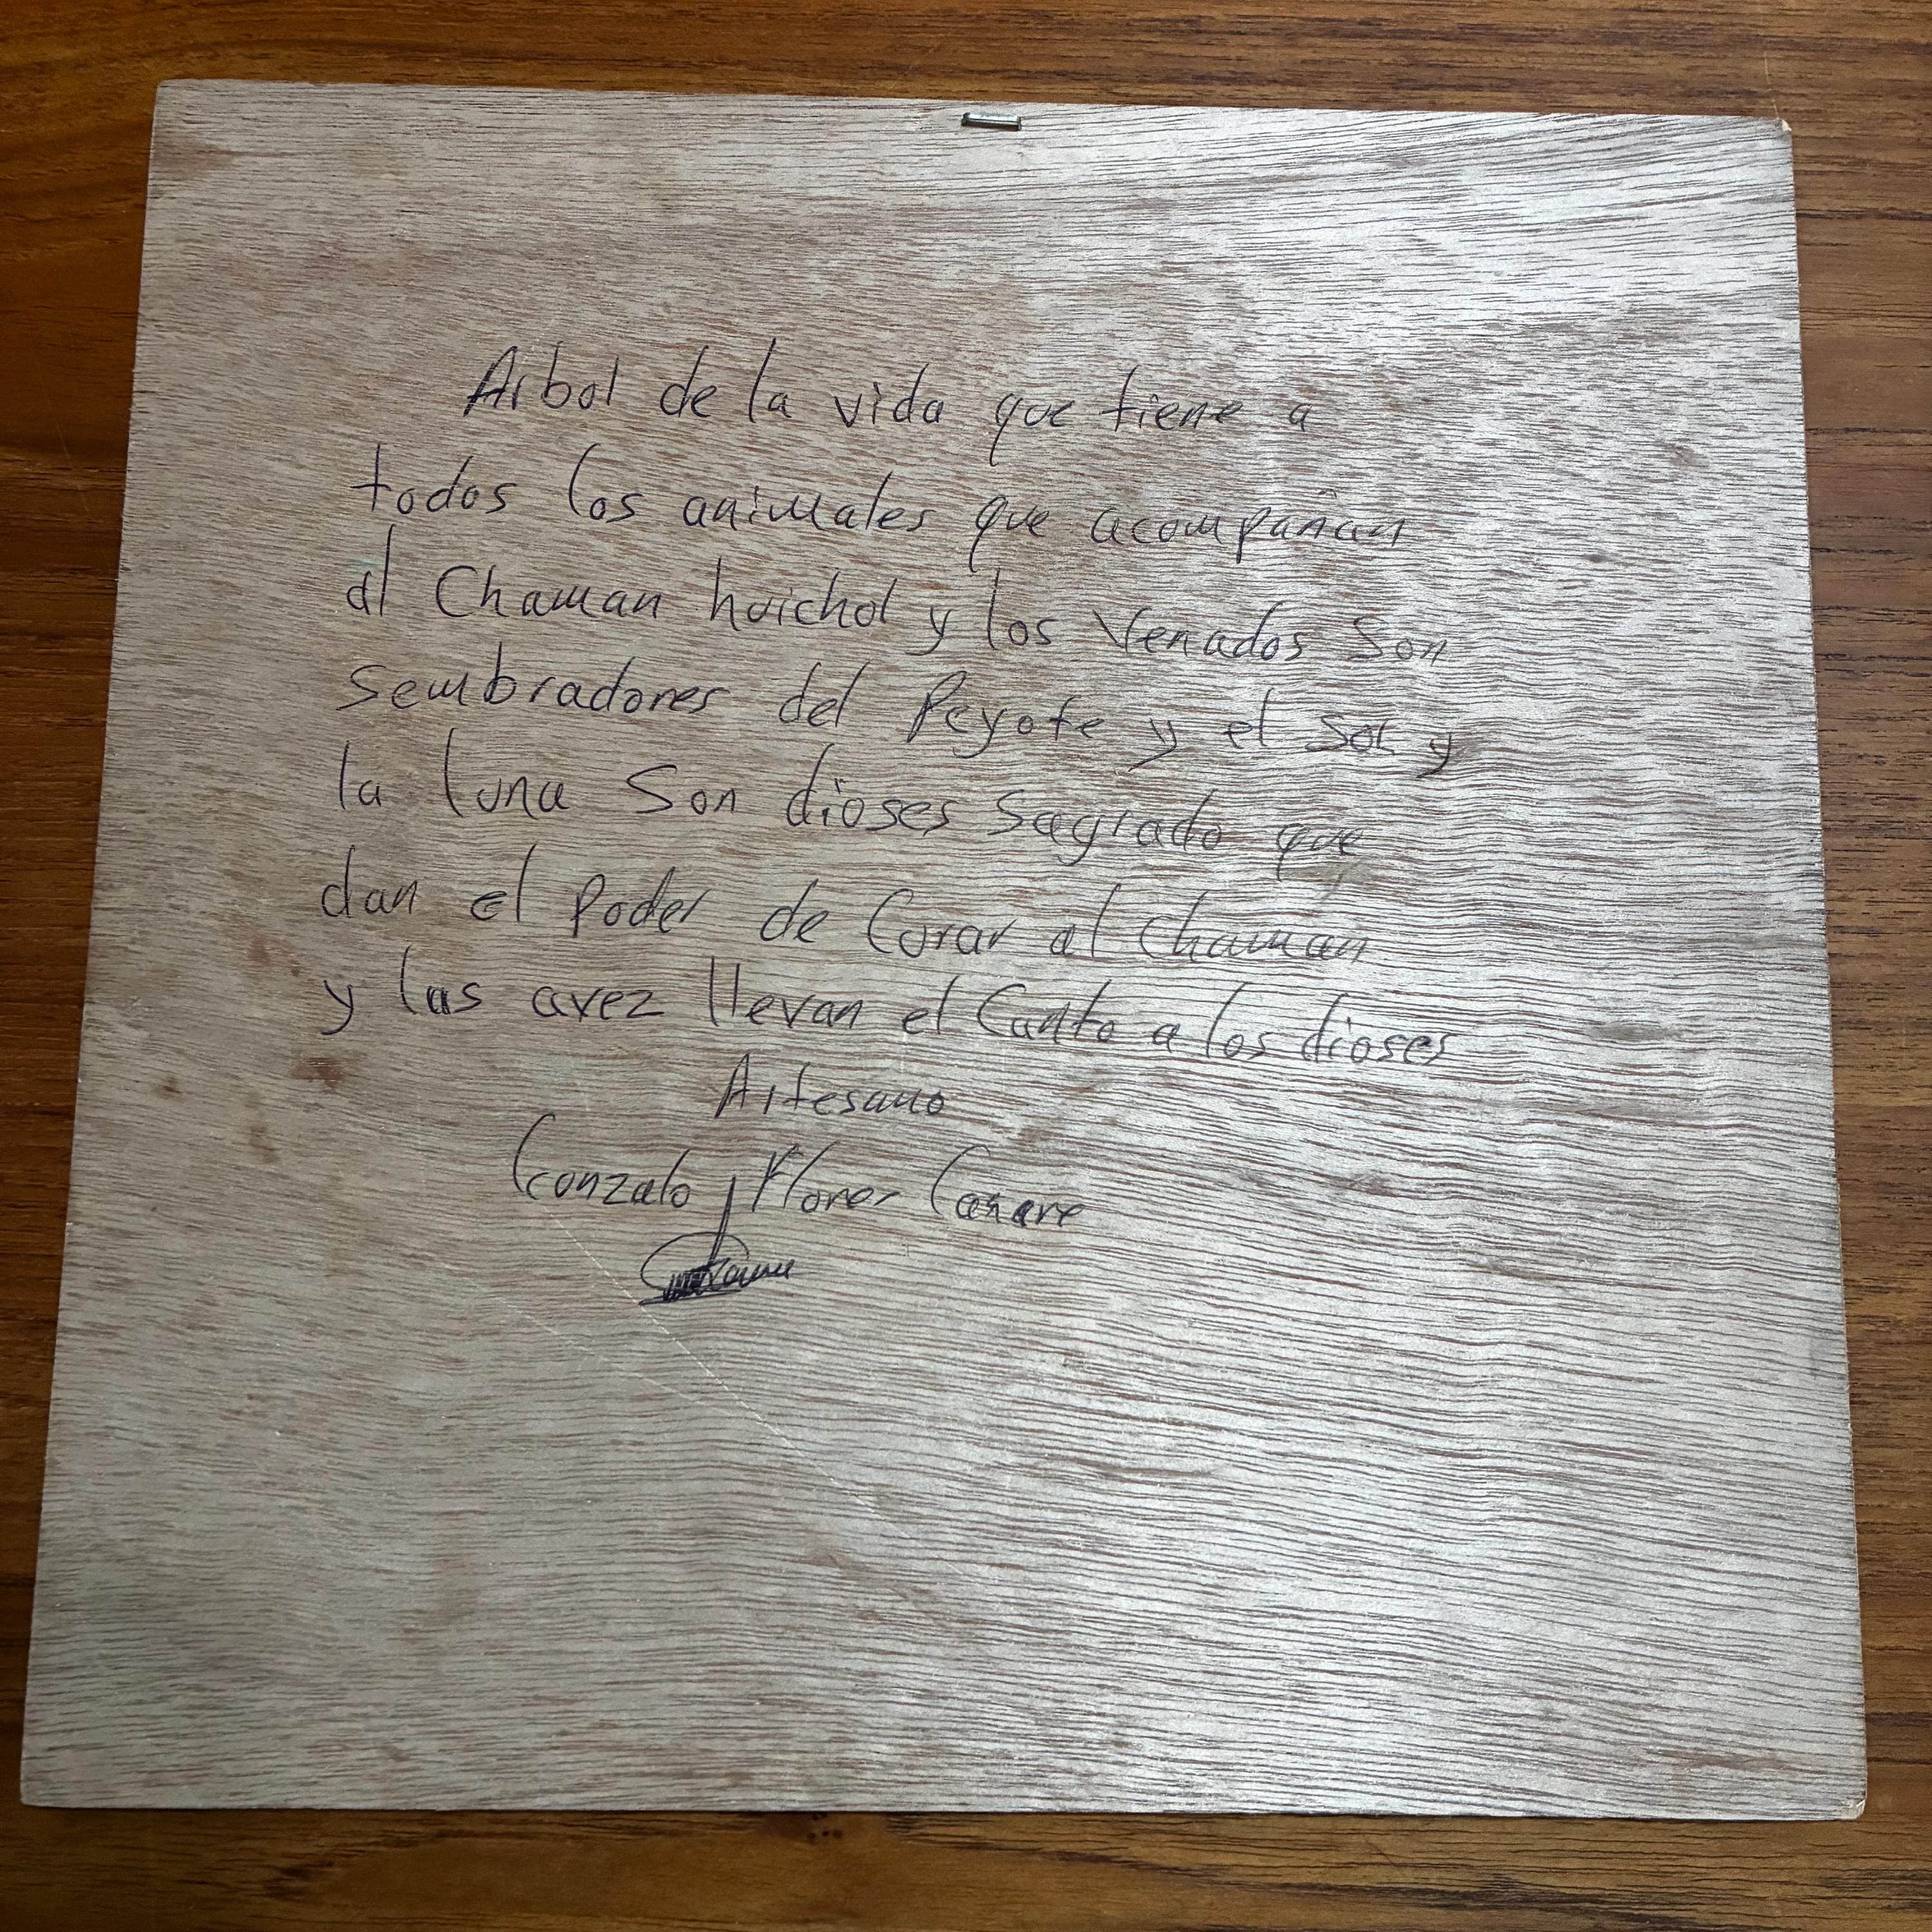 Arbol de la vida que tiene a
todos los animales que acompañan
al Chaman huichol y los Venados Son
Sembradores del Peyote y el Sol y
la luna Son dioses Sagrado que
dan el Poder de Curar al chaman
y las avez llevan el Canto a los dioses
Artesano
Gonzalo Flores